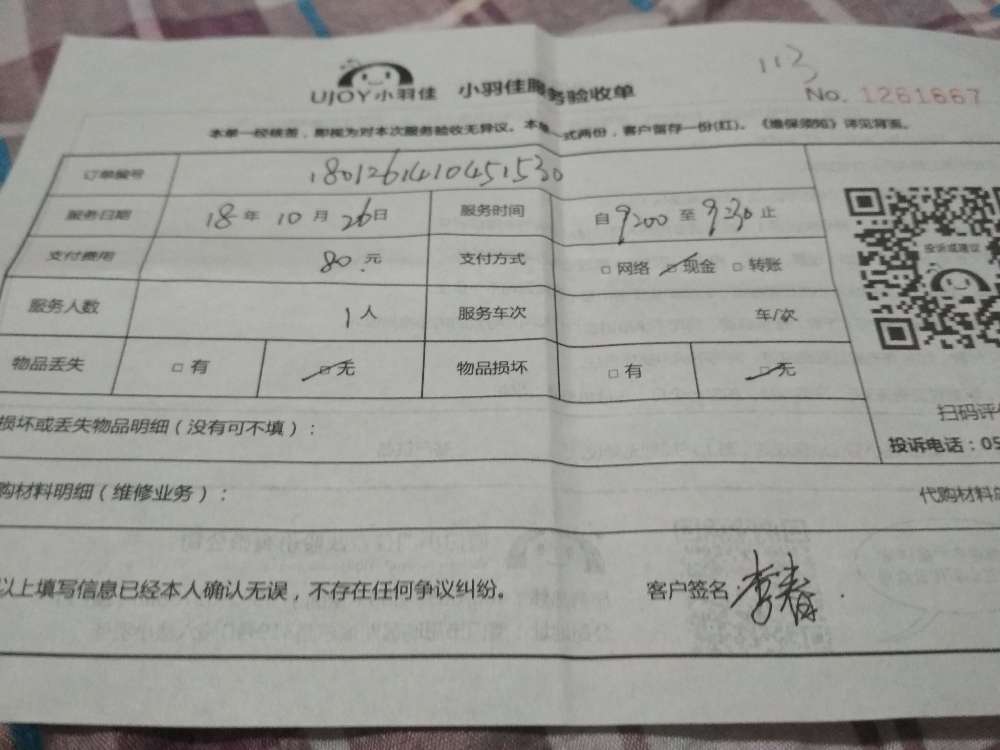 113
UJOY小羽佳 小羽佳服务验收单
No. 1261667
本单一经核签,即视为对本次服务验收无异议。本单一式两份,客户留存一份(红)。《维保须知》详见背面。
订单编号 1801261410451530
服务日期 18年10月26日 服务时间 自9200至9230止
支付费用 80元 支付方式 □网络 ☑现金 □转账
投诉或建议
服务人数 1人 服务车次 车/次
物品丢失 □有 ☑无 物品损坏 □有 ☑无
扫码评
损坏或丢失物品明细(没有可不填):
投诉电话:05
购材料明细(维修业务): 代购材料
以上填写信息已经本人确认无误,不存在任何争议纠纷。 客户签名:李春